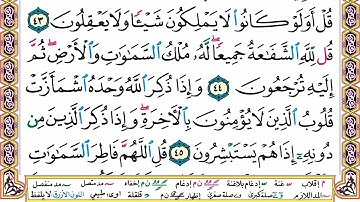 قُلْ أَوَلَوْ كَانُوا۟ لَا يَمْلِكُونَ شَيْـًٔا وَلَا يَعْقِلُونَ ٤٣
قُل لِّلَّهِ ٱلشَّفَـٰعَةُ جَمِيعًا ۖ لَّهُۥ مُلْكُ ٱلسَّمَـٰوَٰتِ وَٱلْأَرْضِ ۖ ثُمَّ
إِلَيْهِ تُرْجَعُونَ ٤٤ وَإِذَا ذُكِرَ ٱللَّهُ وَحْدَهُ ٱشْمَأَزَّتْ
قُلُوبُ ٱلَّذِينَ لَا يُؤْمِنُونَ بِٱلْـَٔاخِرَةِ ۖ وَإِذَا ذُكِرَ ٱلَّذِينَ مِن
دُونِهِۦٓ إِذَا هُمْ يَسْتَبْشِرُونَ ٤٥ قُلِ ٱللَّهُمَّ فَاطِرَ ٱلسَّمَـٰوَٰتِ